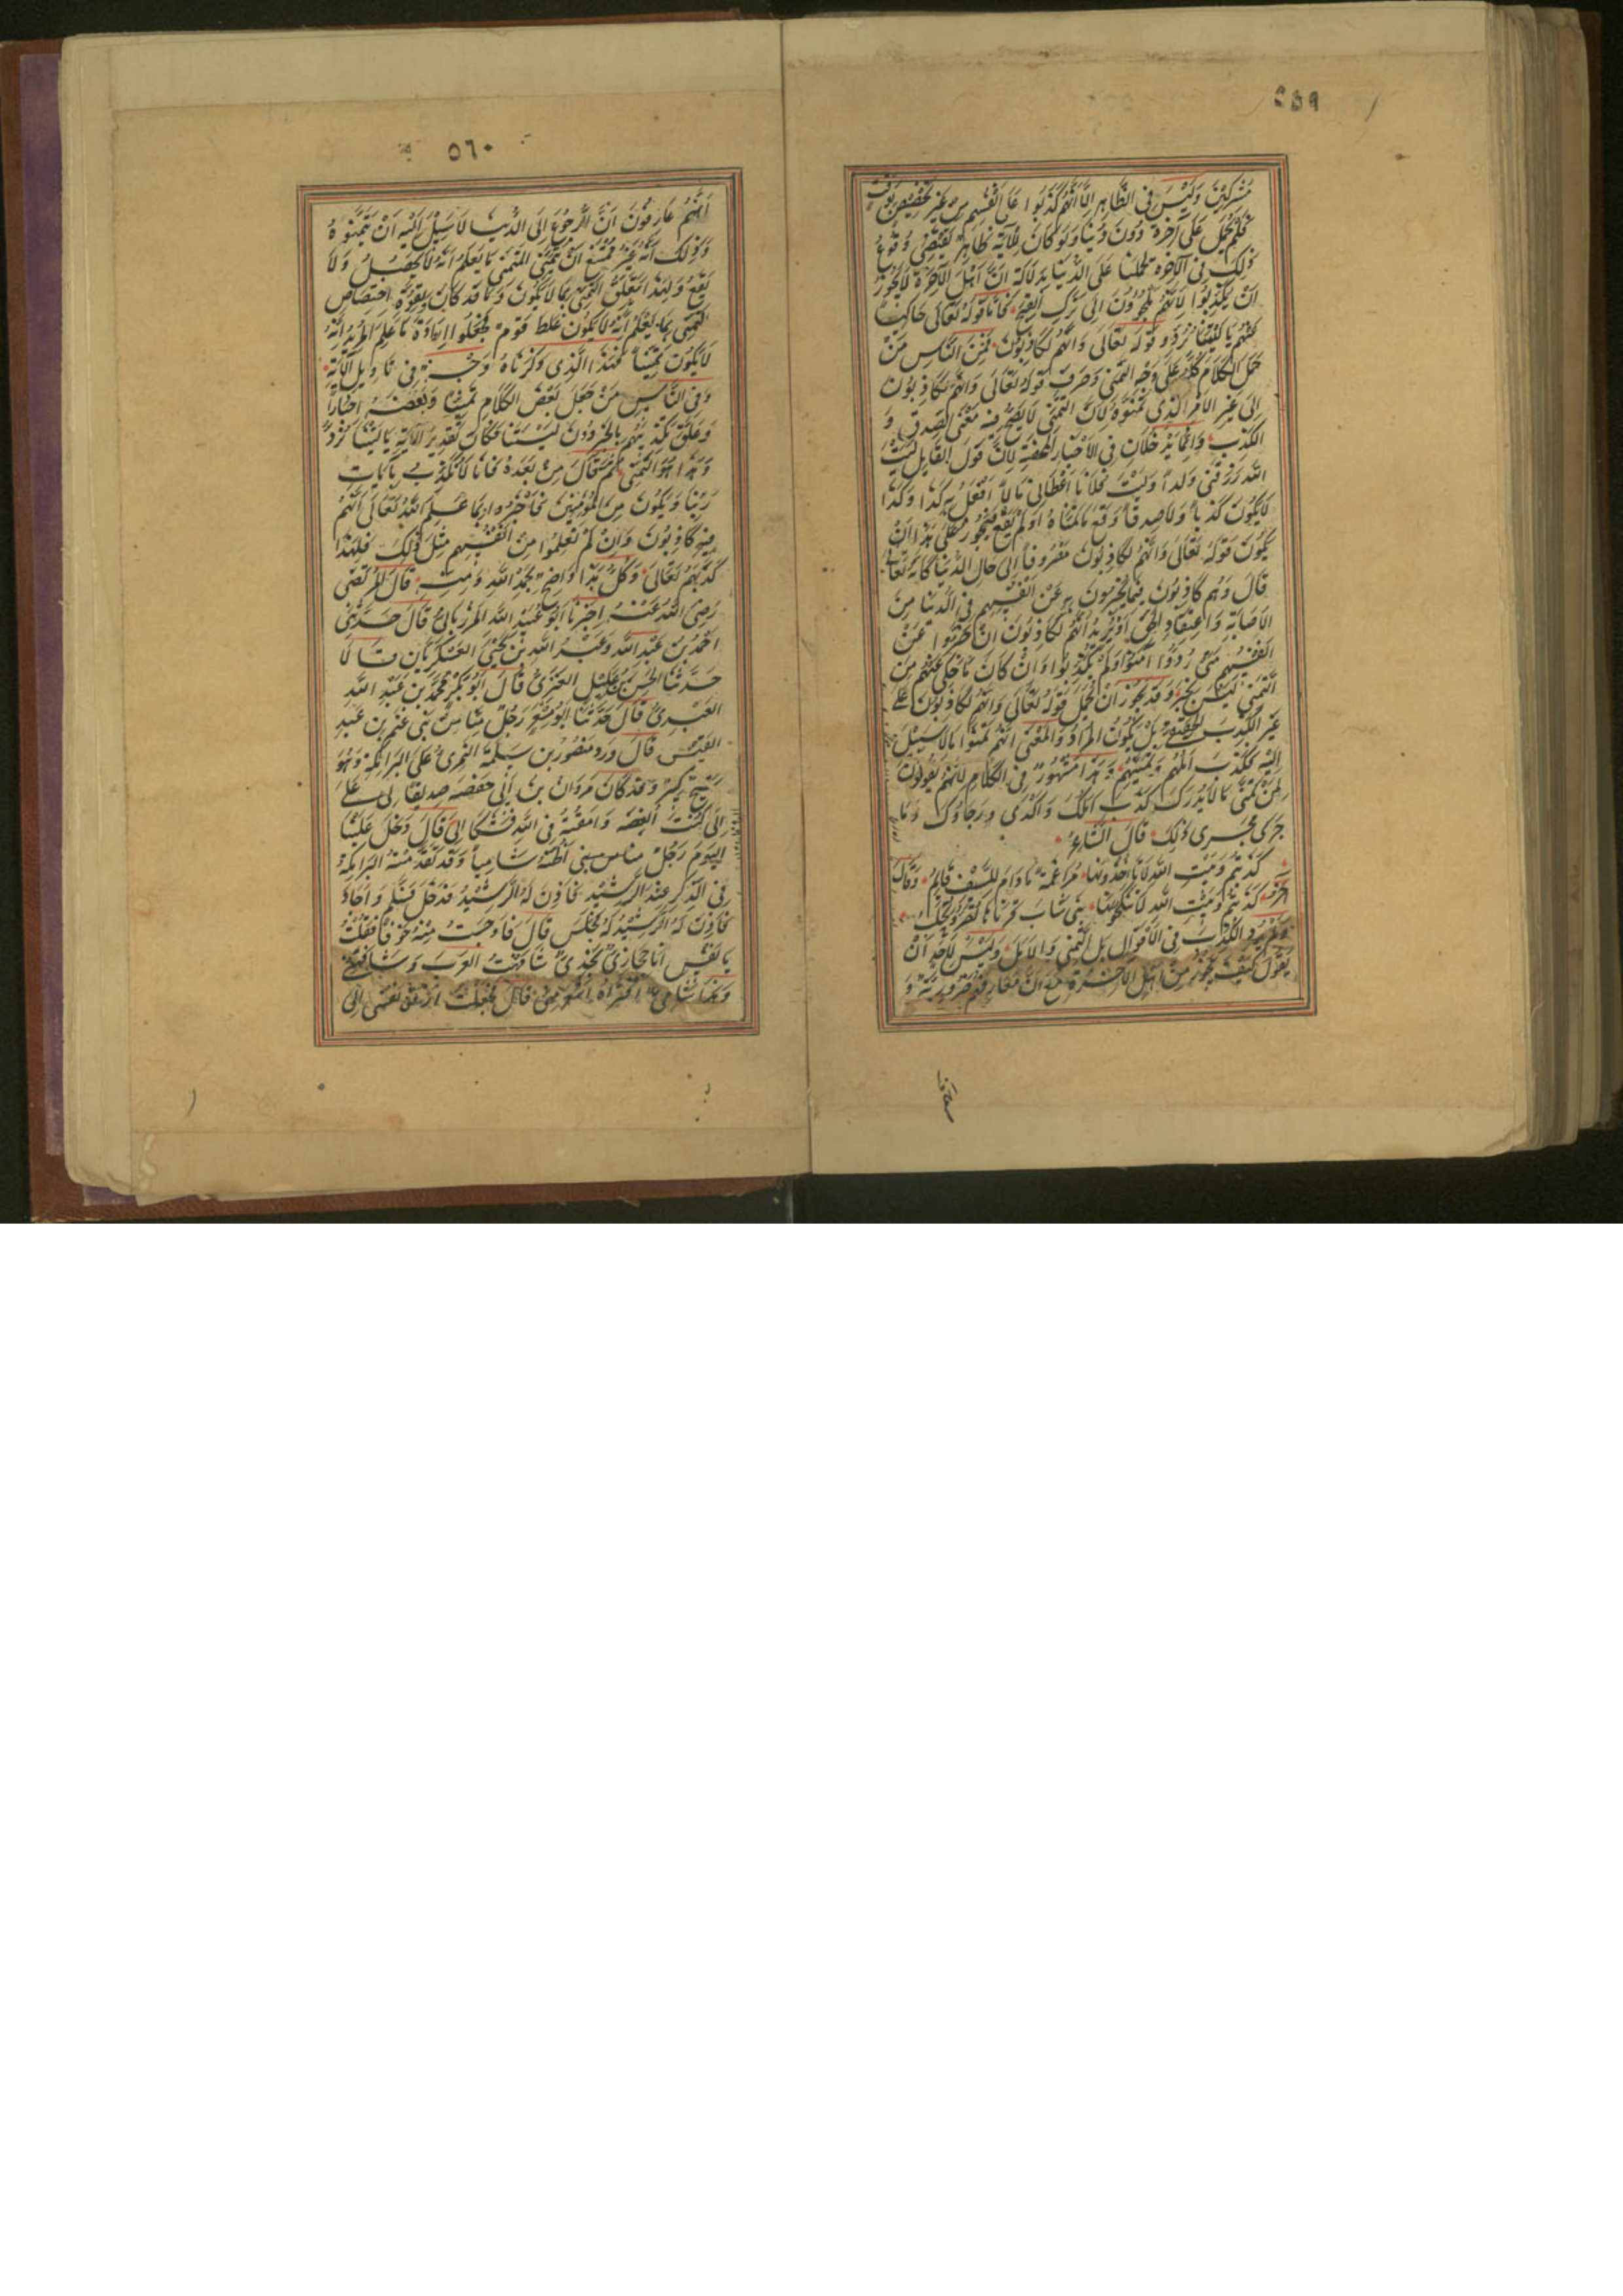 ٥٥٩
مُشْرِكِينَ وَلَيْسَ فِى الظَّاهِرِ اِلَّا اَنَّهُمْ كَذَبُوا عَلَى اَنْفُسِهِمْ مِنْ غَيْرِ تَخْصِيصٍ بِوَقْتٍ
فَلِمَ يُحْمَلُ عَلَى آخِرَةٍ دُونَ دُنْيَا وَلَوْ كَانَ لِلْآيَةِ ظَاهِرٌ يَقْتَضِى وُقُوعَ
ذٰلِكَ فِى الْآخِرَةِ لَحَمَلْنَا عَلَى الدُّنْيَا بِدَلَالَةِ اَنَّ اَهْلَ الْآخِرَةِ لَا يَجُوزُ
اَنْ يَكْذِبُوا لِاَنَّهُمْ مُلْجَؤُونَ اِلَى تَرْكِ الْقَبِيحِ فَاَمَّا قَوْلُهُ تَعَالَى حَاكِيًا
عَنْهُمْ يَا لَيْتَنَا نُرَدُّ وَقَوْلُهُ تَعَالَى وَاِنَّهُمْ لَكَاذِبُونَ فَمِنَ النَّاسِ مَنْ
حَمَلَ الْكَلَامَ كُلَّهُ عَلَى وَجْهِ التَّمَنِّى وَصَرَفَ قَوْلَهُ تَعَالَى وَاِنَّهُمْ لَكَاذِبُونَ
اِلَى غَيْرِ الْاَمْرِ الَّذِى تَمَنَّوْهُ لِاَنَّ التَّمَنِّى لَا يَصِحُّ فِيهِ مَعْنَى الصِّدْقِ وَ
الْكَذِبِ وَاِنَّمَا يَدْخُلَانِ فِى الْاَخْبَارِ الْمَحْضَةِ لِاَنَّ قَوْلَ الْقَائِلِ لَيْتَ
اللّٰهَ رَزَقَنِى وَلَدًا وَلَيْتَ فُلَانًا اَعْطَانِى مَالًا اَفْعَلُ بِهِ كَذَا وَكَذَا
لَا يَكُونُ كَذِبًا وَلَا صِدْقًا وَقَعَ مَا تَمَنَّاهُ اَوْ لَمْ يَقَعْ فَيَجُوزُ عَلَى هَذَا اَنْ
يَكُونَ قَوْلُهُ تَعَالَى وَاِنَّهُمْ لَكَاذِبُونَ مَصْرُوفًا اِلَى حَالِ الدُّنْيَا كَاَنَّهُ تَعَالَى
قَالَ وَهُمْ كَاذِبُونَ فِيمَا يُخْبِرُونَ بِهِ عَنْ اَنْفُسِهِمْ فِى الدُّنْيَا مِنَ
الْاِصَابَةِ وَاعْتِقَادِ الْحَقِّ اَوْ يُرِيدُ اَنَّهُمْ لَكَاذِبُونَ اِنْ خَبَّرُوا عَنْ
اَنْفُسِهِمْ مَتَى رُدُّوا آمَنُوا وَلَمْ يُكَذِّبُوا وَاِنْ كَانَ مَا حُكِىَ عَنْهُمْ مِنَ
التَّمَنِّى لَيْسَ بِخَبَرٍ وَقَدْ يَجُوزُ اَنْ يُحْمَلَ قَوْلُهُ تَعَالَى وَاِنَّهُمْ لَكَاذِبُونَ عَلَى
غَيْرِ الْكَذِبِ الْحَقِيقِىِّ بَلْ يَكُونُ الْمُرَادُ وَالْمَعْنَى اَنَّهُمْ تَمَنَّوْا مَا لَا سَبِيلَ
اِلَيْهِ فَكَذَبَ اَمَلُهُمْ وَتَمَنِّيهِمْ وَهَذَا مَشْهُورٌ فِى الْكَلَامِ لِاَنَّهُمْ يَقُولُونَ
لِمَنْ تَمَنَّى مَا لَا يُدْرَكُ كَذَبَ اَمَلُكَ وَاَكْدَى رَجَاؤُكَ وَمَا
جَرَى مَجْرَى ذٰلِكَ قَالَ الشَّاعِرُ
كَذَبْتُمْ وَبَيْتِ اللّٰهِ لَا تَاْخُذُونَهَا مُرَاغَمَةً مَا دَامَ لِلسَّيْفِ قَائِمُ وَقَالَ
آخَرُ كَذَبْتُمْ وَبَيْتِ اللّٰهِ لَا تَنْكِحُونَهَا بَنِى شَابَ قَرْنَاهَا تَصُرُّ وَتَحْلُبُ
وَلَمْ يُرِدِ الْكَذِبَ فِى الْاَقْوَالِ بَلْ التَّمَنِّى وَالْاَمَلَ وَلَيْسَ لِاَحَدٍ اَنْ
يَقُولَ كَيْفَ يَجُوزُ مِنْ اَهْلِ الْآخِرَةِ مَعَ اَنَّ مَعَارِفَهُمْ ضَرُورِيَّةٌ وَ
٥٦٠
اَنَّهُمْ عَارِفُونَ اَنَّ الرُّجُوعَ اِلَى الدُّنْيَا لَا سَبِيلَ اِلَيْهِ اَنْ يَتَمَنَّوْهُ
وَذٰلِكَ اَنَّهُ غَيْرُ مُمْتَنِعٍ اَنْ يَتَمَنَّى الْمُتَمَنِّى مَا يَعْلَمُ اَنَّهُ لَا يَحْصُلُ وَلَا
يَقَعُ وَلِهَذَا يَتَعَلَّقُ التَّمَنِّى بِمَا لَا يَكُونُ وَمَا قَدْ كَانَ وَلِقُوَّةِ اخْتِصَاصِ
التَّمَنِّى بِمَا يُعْلَمُ اَنَّهُ لَا يَكُونُ غَلِطَ قَوْمٌ فَجَعَلُوا اِرَادَةَ مَا عَلِمَ الْمُرِيدُ اَنَّهُ
لَا يَكُونُ تَمَنِّيًا فَهَذَا الَّذِى ذَكَرْنَاهُ وَجْهٌ فِى تَاْوِيلِ الْآيَةِ
وَفِى النَّاسِ مَنْ جَعَلَ بَعْضَ الْكَلَامِ تَمَنِّيًا وَبَعْضَهُ اِخْبَارًا
وَعَلَّقَ تَكْذِيبَهُمْ بِالْخَبَرِ دُونَ لَيْتَنَا فَكَانَ تَقْدِيرُ الْآيَةِ يَا لَيْتَنَا نُرَدُّ
وَهَذَا هُوَ التَّمَنِّى ثُمَّ قَالَ مِنْ بَعْدِهِ فَاِنَّا لَا نُكَذِّبُ بِآيَاتِ
رَبِّنَا وَنَكُونُ مِنَ الْمُؤْمِنِينَ فَاَخْبَرُوا بِمَا عَلِمَ اللّٰهُ تَعَالَى اَنَّهُمْ
فِيهِ كَاذِبُونَ وَاِنْ لَمْ يَعْلَمُوا مِنْ اَنْفُسِهِمْ مِثْلَ ذٰلِكَ فَلِهَذَا
كَذَّبَهُمْ تَعَالَى وَكُلُّ هَذَا وَاضِحٌ بِحَمْدِ اللّٰهِ وَمَنِّهِ قَالَ الْمُرْتَضَى
رَضِىَ اللّٰهُ عَنْهُ اَخْبَرَنَا اَبُو عُبَيْدِ اللّٰهِ الْمَرْزُبَانِىُّ قَالَ حَدَّثَنِى
اَحْمَدُ بْنُ عَبْدِ اللّٰهِ وَعَبْدُ اللّٰهِ بْنُ يَحْيَى الْعَسْكَرِيَّانِ قَالَا
حَدَّثَنَا الْحَسَنُ بْنُ عُلَيْلٍ الْعَنَزِىُّ قَالَ اَبُو بَكْرٍ مُحَمَّدُ بْنُ عَبْدِ اللّٰهِ
الْعَبْدِىُّ قَالَ حَدَّثَنَا اَبُو مِسْعَرٍ رَجُلٌ مِنَّا مِنْ بَنِى غَنْمِ بْنِ عَبْدِ
الْقَيْسِ قَالَ وَرَدَ مَنْصُورُ بْنُ سَلَمَةَ النَّمَرِىُّ عَلَى الْبَرَامِكَةِ وَهُوَ
شَيْخٌ كَبِيرٌ وَقَدْ كَانَ مَرْوَانُ بْنُ اَبِى حَفْصَةَ صَدِيقًا لِى عَلَى
اَنِّى كُنْتُ اُبْغِضُهُ وَاَمْقُتُهُ فِى اللّٰهِ فَشَكَا اِلَىَّ قَالَ دَخَلَ عَلَيْنَا
الْيَوْمَ رَجُلٌ اَظُنُّهُ شَامِيًّا وَقَدْ تَقَدَّمَتْهُ الْبَرَامِكَةُ
فِى الذِّكْرِ عِنْدَ الرَّشِيدِ فَاَذِنَ لَهُ الرَّشِيدُ فَدَخَلَ فَسَلَّمَ وَاَجَادَ
فَاَذِنَ لَهُ الرَّشِيدُ فَجَلَسَ قَالَ فَاَوْجَسْتُ مِنْهُ خَوْفًا فَقُلْتُ
يَا نَفْسِ اَنَا حِجَازِىٌّ نَجْدِىٌّ شَافَهْتُ الْعَرَبَ وَشَافَهَتْنِى
وَهَذَا شَامِىٌّ اَفَتَرَاهُ اَشْعَرَ مِنِّى قَالَ فَجَعَلْتُ اَرْفُقُ نَفْسِى اِلَى